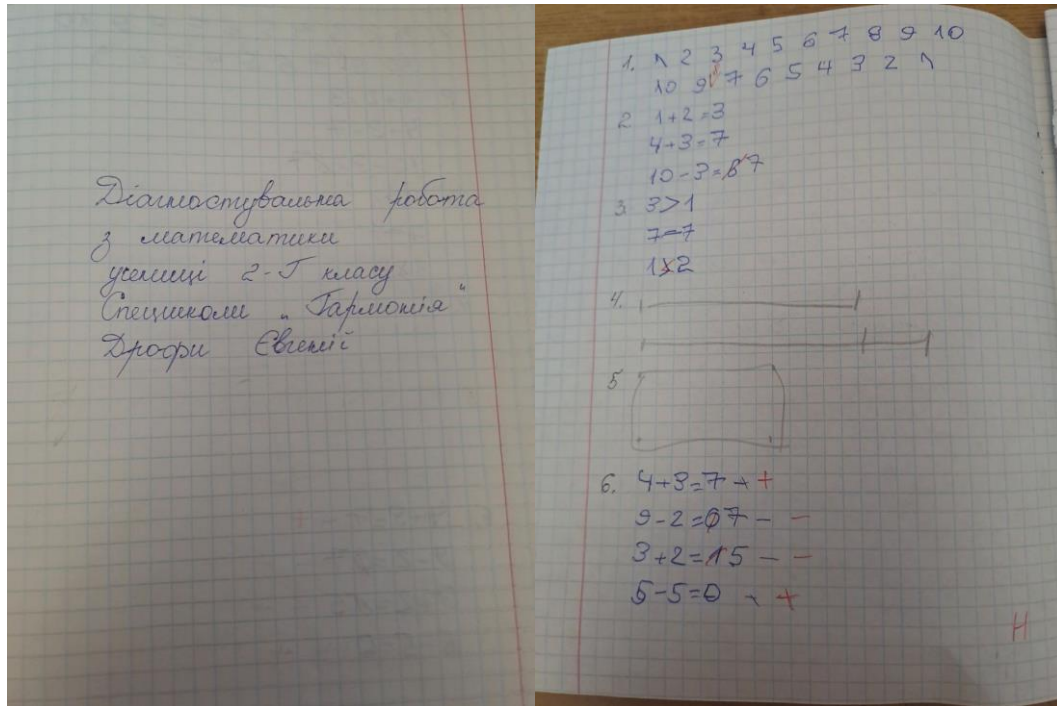 Діагностувальна робота
з математики
учениці 2-Г класу
Спецшколи „Гармонія"
Дрофи Євгенії
1. 1 2 3 4 5 6 7 8 9 10
10 9 7 6 5 4 3 2 1
2 1+2=3
4+3=7
10-3=7
3. 3>1
7=7
1 2
4.
5
6. 4+3=7 + +
9-2=7 - -
3+2=5 - -
5-5=0 - +
Н